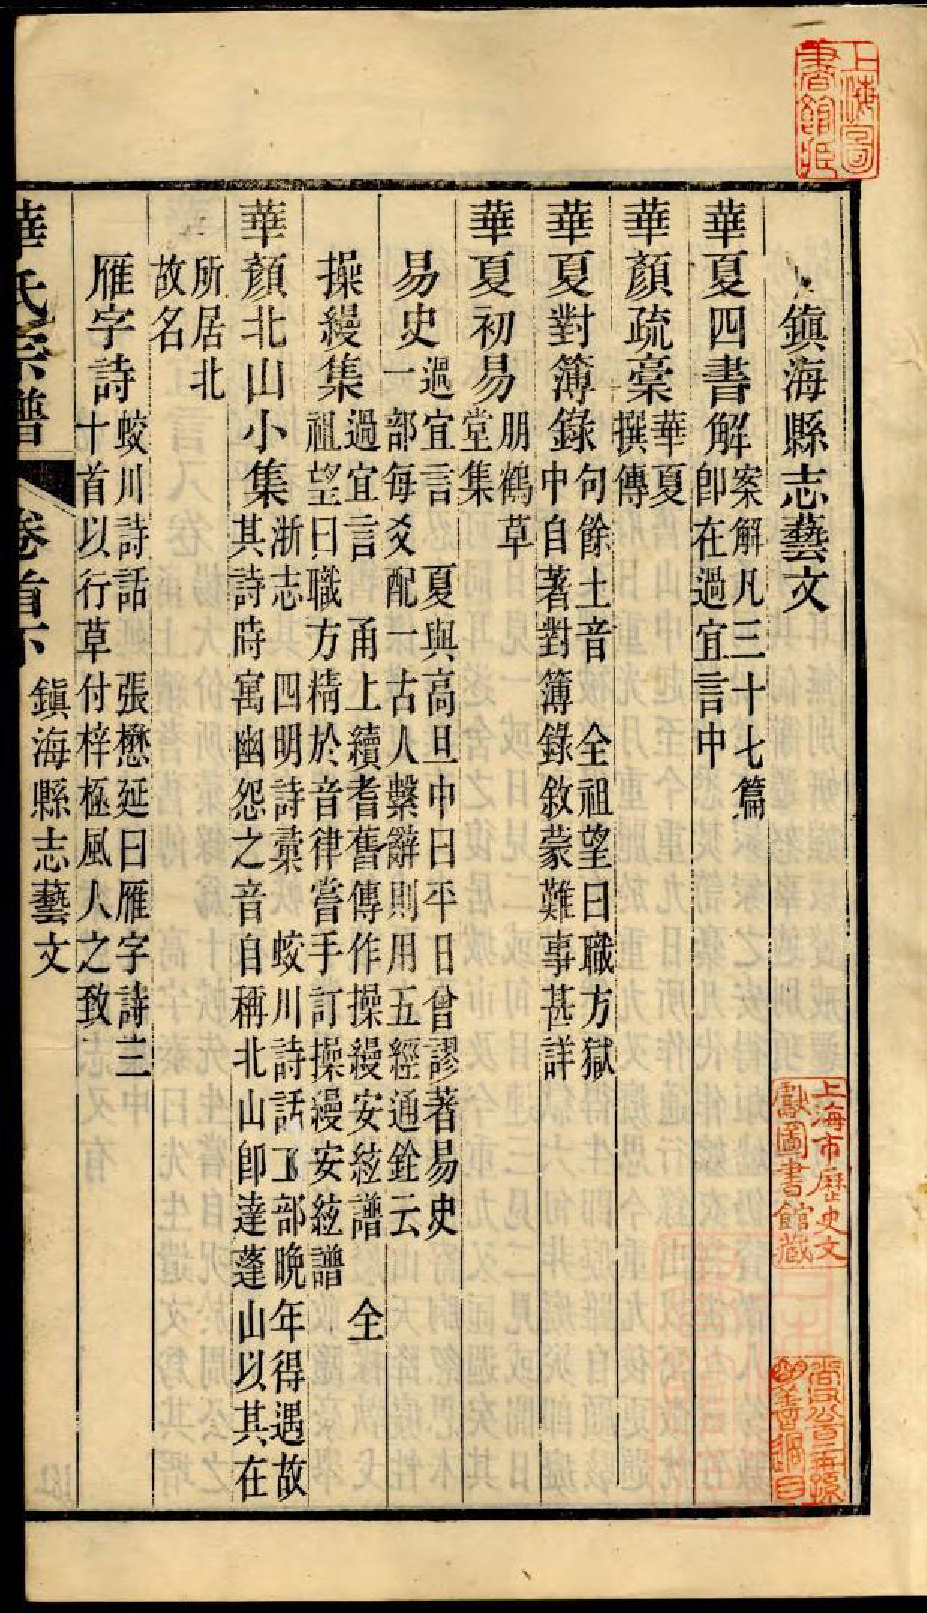 上海圖
書館臧
鎭海縣志藝文
華夏四書解案解凡三十七篇
卽在過宜言中
華顏疏稾華夏
撰傳
華夏對簿錄句餘土音 全祖望曰職方獄
中自著對簿錄敘蒙難事甚詳
華夏初易朋鶴草
堂集
易史過宜言 夏與高旦中曰平日曾謬著易史
一部每爻配一古人繫辭則用五經通銓云
操縵集過宜言 甬上續耆舊傳作操縵安絃譜 全
祖望曰職方精於音律嘗手訂操縵安絃譜
華顏北山小集浙志 四明詩稾 蛟川詩話 工部晩年得遇故
其詩時寓幽怨之音自稱北山卽達蓬山以其在
所居北
故名
雁字詩蛟川詩話 張懋延曰雁字詩三
十首以行草付梓極風人之致
華氏宗譜 卷首下 鎭海縣志藝文
上海市歷史文
獻圖書館藏